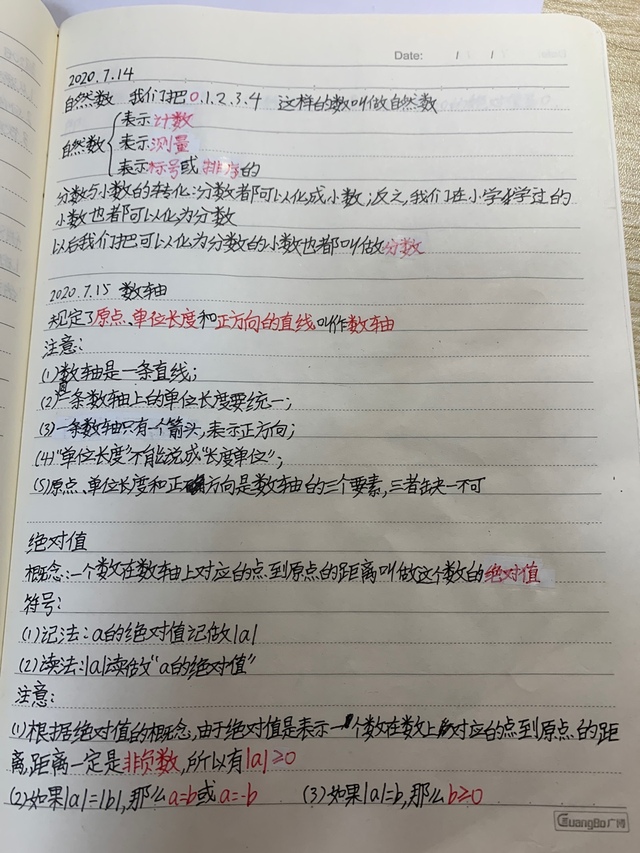 Date: / /
2020.7.14
自然数 我们把0.1.2.3.4 这样的数叫做自然数
自然数 表示计数
表示测量
表示标号或排序的
分数与小数的转化:分数都可以化成小数;反之,我们在小学学过的
小数也都可以化为分数
以后我们把可以化为分数的小数也都叫做分数
2020.7.15 数轴
规定了原点、单位长度和正方向的直线叫作数轴
注意:
(1)数轴是一条直线;
(2)同一条数轴上的单位长度要统一;
(3)一条数轴只有一个箭头,表示正方向;
(4)“单位长度”不能说成“长度单位”;
(5)原点、单位长度和正方向是数轴的三个要素,三者缺一不可
绝对值
概念:一个数在数轴上对应的点到原点的距离叫做这个数的绝对值
符号:
(1)记法:a的绝对值记做|a|
(2)读法:|a|读做“a的绝对值”
注意:
(1)根据绝对值的概念,由于绝对值是表示一个数在数上对应的点到原点的距
离,距离一定是非负数,所以有|a|≥0
(2)如果|a|=|b|,那么a=b或a=-b (3)如果|a|=b,那么b≥0
GuangBo广博